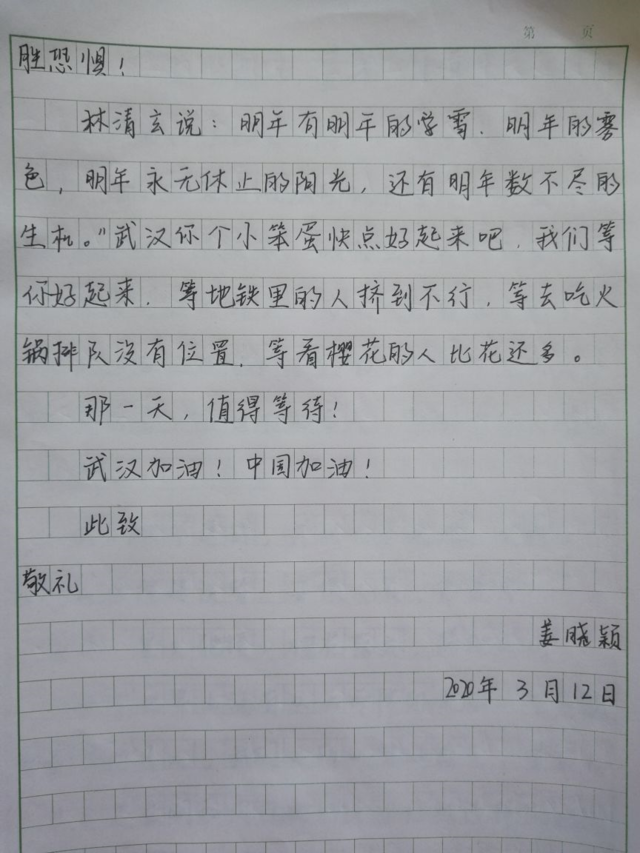 第 页
胜恐惧！
林清玄说：明年有明年的学雪．明年的雾
色，明年永无休止的阳光，还有明年数不尽的
生机。”武汉你个小笨蛋快点好起来吧．我们等
你好起来．等地铁里的人挤到不行．等去吃火
锅排队没有位置．等看樱花的人比花还多。
那一天，值得等待！
武汉加油！中国加油！
此致
敬礼
姜晓颖
2020年3月12日